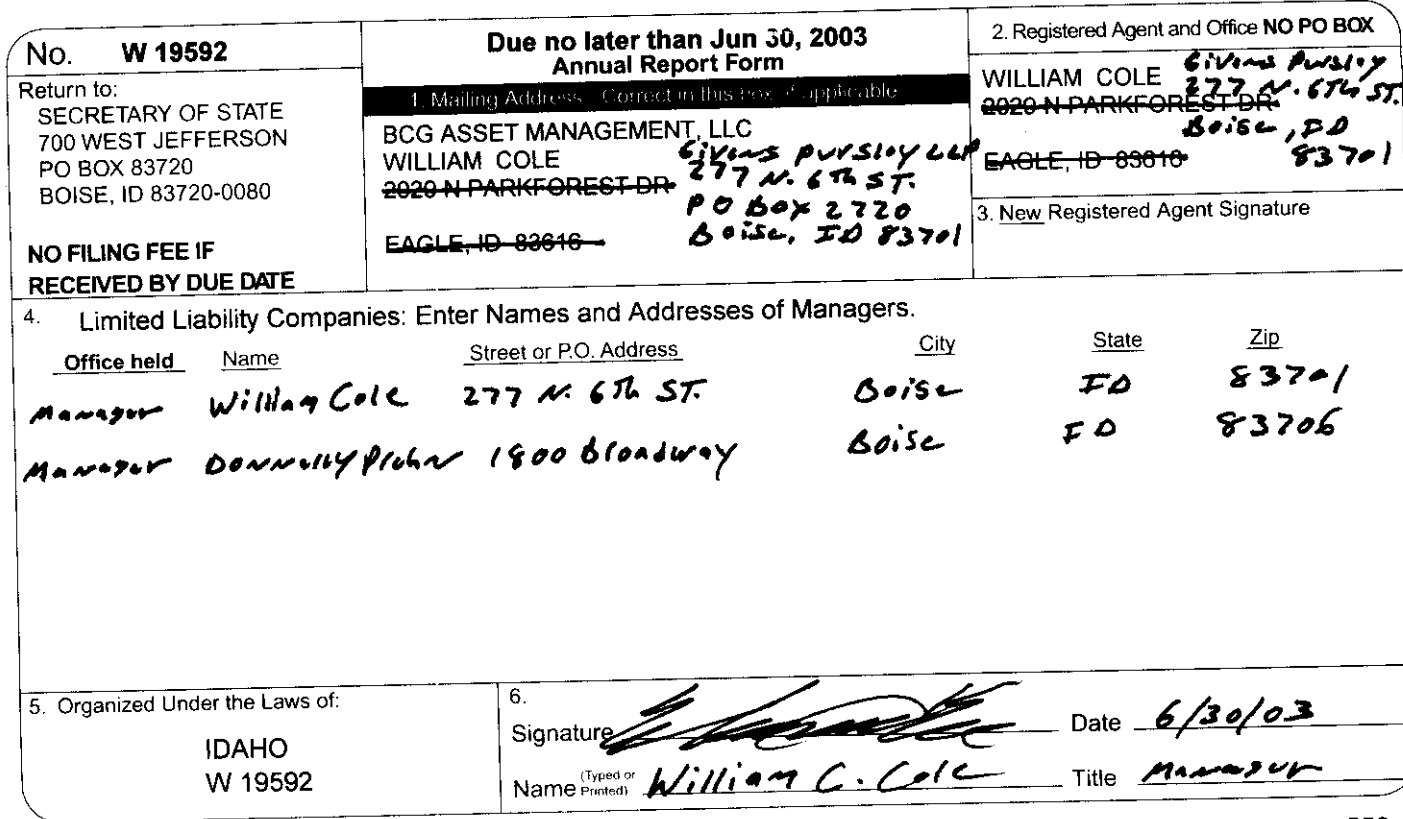 No. W 19592
Return to:
SECRETARY OF STATE
700 WEST JEFFERSON
PO BOX 83720
BOISE, ID 83720-0080
NO FILING FEE IF
RECEIVED BY DUE DATE
Due no later than Jun 30, 2003
Annual Report Form
1. Mailing Address Correct in this box if applicable
BCG ASSET MANAGEMENT, LLC
WILLIAM COLE
2020 N PARKFOREST DR
EAGLE, ID 83616
Givens Pursley LLP
277 N. 6th ST.
PO Box 2720
Boise, ID 83701
2. Registered Agent and Office NO PO BOX
WILLIAM COLE
2020 N PARKFOREST DR
EAGLE, ID 83616
Givens Pursley
277 N. 6th ST.
Boise, ID
83701
3. New Registered Agent Signature
4. Limited Liability Companies: Enter Names and Addresses of Managers.
Office held Name Street or P.O. Address City State Zip
Manager William Cole 277 N. 6th ST. Boise ID 83701
Manager Donnelly 1800 Broadway Boise ID 83706
5. Organized Under the Laws of:
IDAHO
W 19592
6.
Signature Date 6/30/03
Name (Typed or Printed) William C. Cole Title Manager